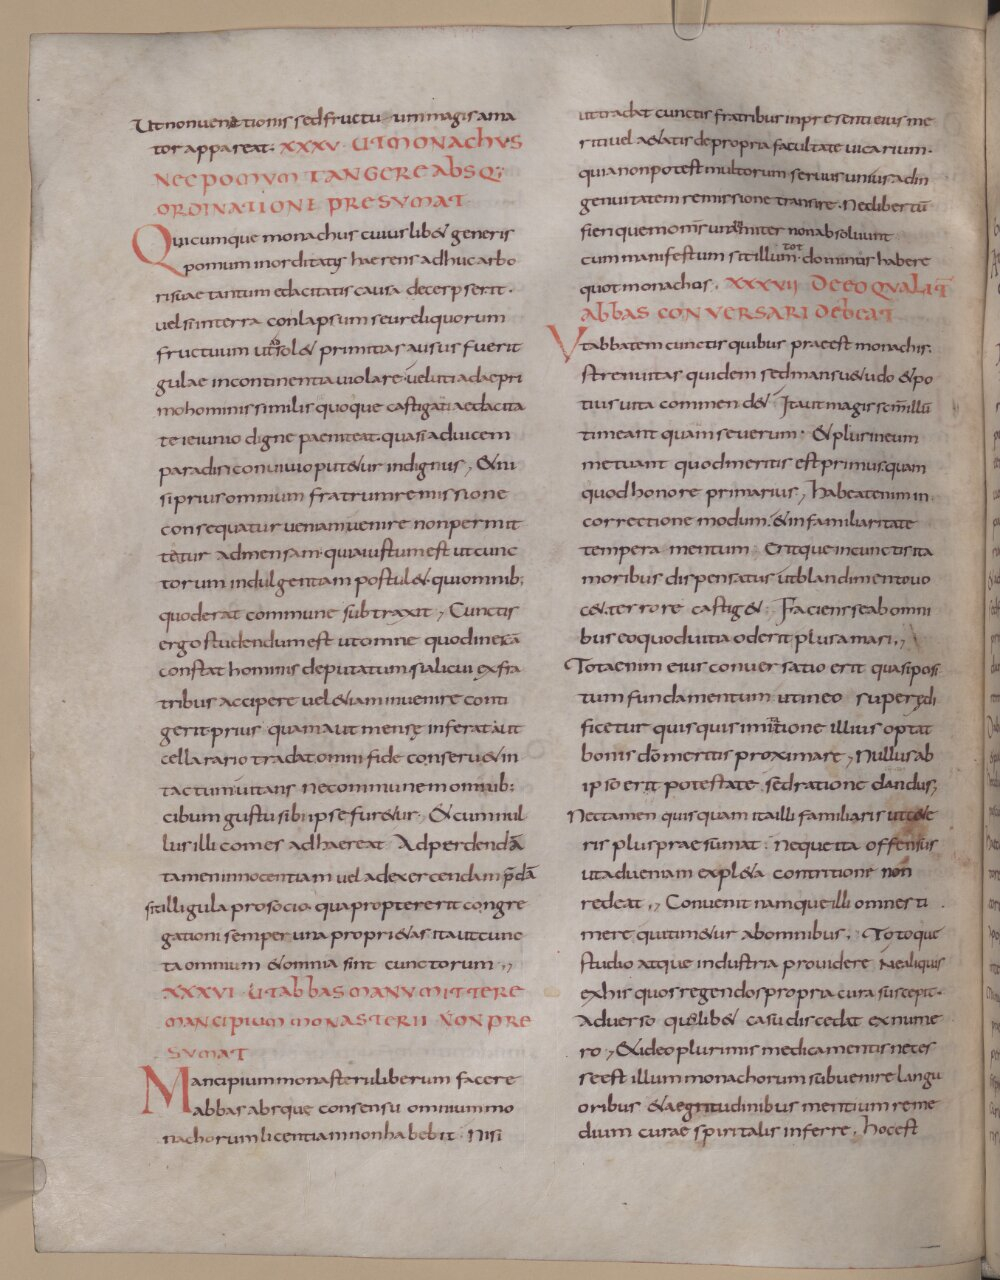 Ut non ventionis sed fructuum magis ama
tor appareat. XXXV UT MONACHUS
NEC POMUM TANGERE ABSQ;
ORDINATIONE PRESUMAT
Quicumque monachus cuius lib& generis
pomum in ordi&atis haerens adhuc arbo
ris uae tantum edacitatis causa decerpserit.
vel si in terra conlapsum seu reliquorum
fructuum primitias ausus fuerit
gulae incontinentia violare. velut ia dae pri
mo hominis similis quoque castigati aedacita
te ieiunio digne paeniteat. quasi aduicem
paradisi conuiuio put&ur indignus, & ni
si prius omnium fratrum remissione
consequatur ueniam uenire non permit
tetur admensam. quia iustum est ut cunc
torum indulgentiam postul&. qui omnib;
quod erat commune subtraxit, Cunctis
ergo studendum est ut omne quod inera
constat hominis deputatum si alicui exfra
tribus accipere vel &iam inuenire conti
gerit prius quam aut mense inferat aut
cellarario tradat omni fide conseru& in
tactum uitans ne commune omnib:
cibum gustu sibi ipse fur&ur, Et cum nul
lus illi comes adhaereat Ad perdendā
tamen innocentiam vel ad exercendam p̄dā
sit illi gula pro socio. qua propter erit congre
gationi semper una propri&as ita ut cunc
ta omnium & omnia sint cunctorum,,
XXXVI UT ABBAS MANUMITTERE
MANCIPIUM MONASTERII NON PRE
SUMAT
Mancipium monasterii liberum facere
abbas absque consensu omnium mo
nachorum licentiam non habebit. Nisi
ut tradat cunctis fratribus in presenti eius me
riti vel a&atis de propria facultate uicarium.
quia non potest multorum seruus unius ad in
genuitatem remissione transire. Nec libertū
fieri quem omns unanimiter non absoluunt
cum manifestum sit illum tot dominis habere
quot monachos. XXXVII DE EO QUALIT̄
ABBAS CONVERSARI DEBEAT
Vt abbatem cunctis quibus praeest monachis.
strenuitas quidem sed mansu&udo & po
tius uita commend& Ita ut magis semillū
timeant quam seuerum. & plus meum
metuant quod meritis est primus quam
quod honore primarius, habeat enim in
correctione modum. & in familiaritate
temperamentum. Eritque in cunctis ita
moribus dispensatus ut blandimento uo
c& terrore castig&. Faciens se ab omni
bus eo quod uitia oderit plus amari.,
Tota enim eius conuersatio erit quasi posi
tum fundamentum ut in eo superędi
ficetur quisquis imitatione illius optat
bonis dō meritis proximare, Nullus ab
ipso erit potestate sed ratione dandus,
Nec tamen quisquam ita illi familiaris ut c&e
ris plus praesumat. neque ita offensus
ut a dueniam expl&a contritione non
redeat.,, Convenit namque illi omnes ti
mere qui tim&ur ab omnibus. Totoque
studio atque industria prouidere Ne aliquis
ex his quos regendos propria cura suscepit.
aduerso quolib& casu discedat ex nume
ro, & ideo plurimis medicamentis neces
se est illum monachorum subuenire langu
oribus & aegritudinibus mentium reme
dium curae spiritalis inferre, hoc est